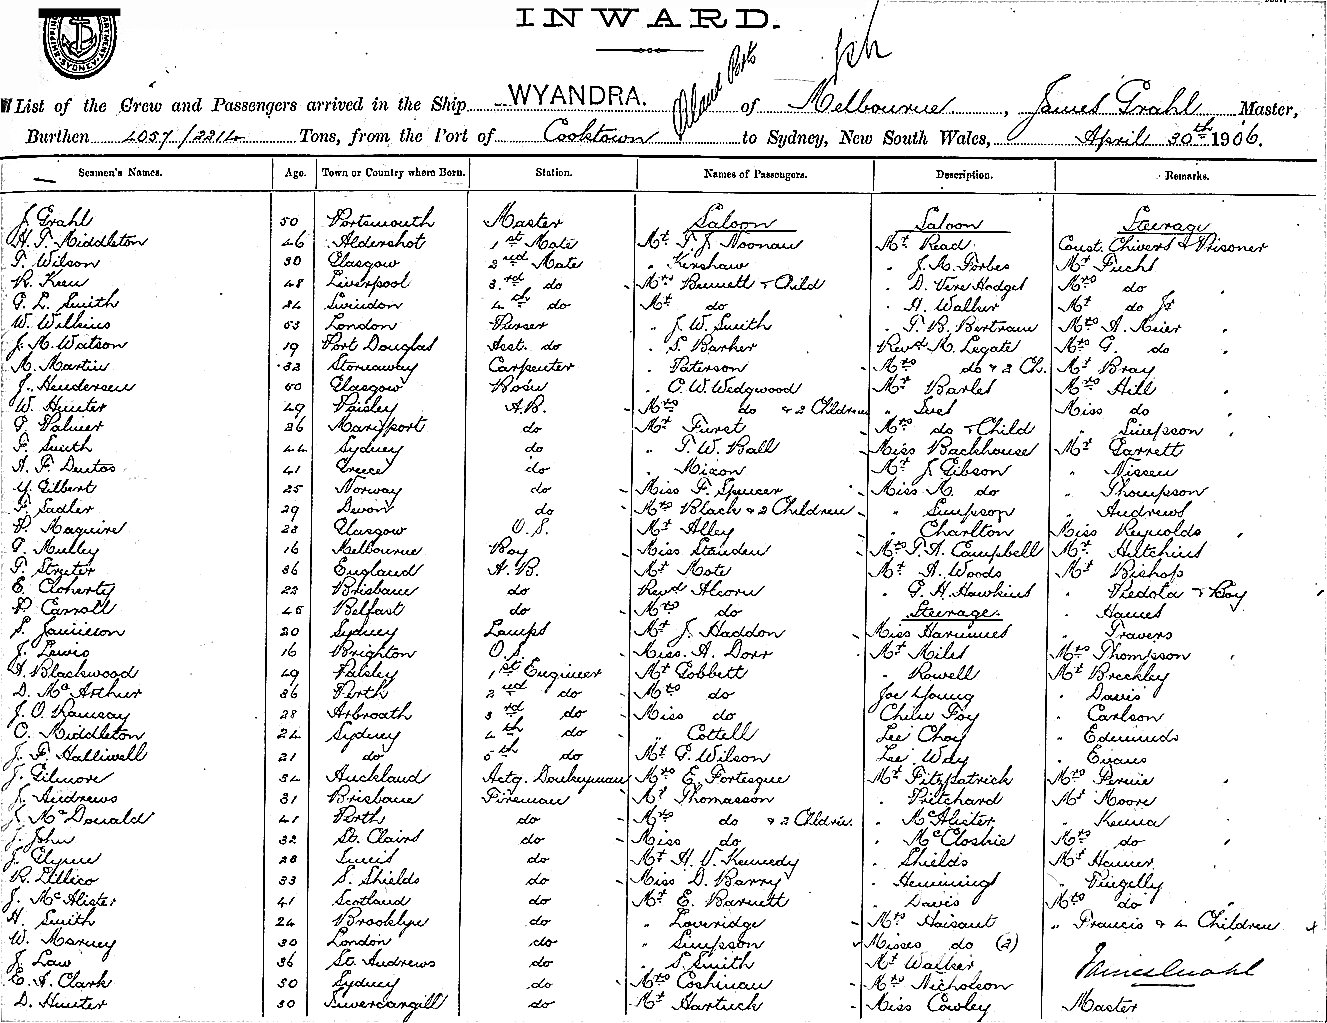 INWARD.
List of the Crew and Passengers arrived in the Ship WYANDRA. of Melbourne, James Grahl Master,
Burthen 4057/2214 Tons, from the Port of Cooktown to Sydney, New South Wales, April 30th 1906.
Seamen's Names. Age. Town or Country where Born. Station. Names of Passengers. Description. Remarks.
J. Grahl 50 Portsmouth Master Saloon Saloon Steerage
H. T. Middleton 46 Aldershot 1st Mate Mr T. J. Noonan Mr Read Const. Chivers & Prisoner
T. Wilson 30 Glasgow 2nd Mate " Kershaw " J. A. Forbes Mr Fuchs
R. Kien 48 Liverpool 3rd do Mrs Bennett & Child " D. Vere Hodges Mrs do
P. L. Smith 24 Swindon 4th do Mr do " A. Walker Mr do Jr
W. Wilkins 53 London Purser " J. W. Smith " T. B. Bertram Mrs A. Meier
J. M. Watson 19 Port Douglas Asst. do " S. Barker Revd M. Legate Mrs G. do
M. Martin 32 Stornaway Carpenter " Paterson Mrs do & 2 Ch. Mr Bray
J. Henderson 50 Glasgow Bosun " C. W. Wedgwood Mr Barlet Mrs Hill
W. Hunter 49 Paisley A.B. Mrs do & 2 Children Miss do
P. Palmer 26 Maryport do Mr Furst Mrs do & Child " Simpson
F. Smith 44 Sydney do " T. W. Ball Miss Backhouse Mr Garrett
A. F. Dentos 41 Greece do " Mixon Mr J. Gibson " Nissen
Y. Gilbert 25 Norway do Miss F. Spencer Miss M. do " Thompson
F. Sadler 29 Devon do Mrs Black & 2 Children " Simpson " Andrews
P. Maguire 23 Glasgow O.S. Mr Alley " Charlton Miss Reynolds
P. Mulley 16 Melbourne Boy Miss Standen Mrs T. A. Campbell Mr Hitchins
T. Streeter 36 England A.B. Mr Mote Mr A. Woods Mr Bishop
E. Cloherty 22 Brisbane do Revd Alcorn " P. H. Hawkins " Viedota & Boy
P. Carroll 46 Belfast do Mrs do Steerage. " Hames
S. Jamieson 20 Sydney Lamps Mr J. Haddon Miss Harmmes " Travers
J. Lewis 16 Brighton O.S. Miss A. Dorr Mr Miles Mrs Thompson
A. Blackwood 49 Paisley 1st Engineer Mr Gobbett " Rowell Mr Breckley
D. McArthur 36 Perth 2nd do Mrs do Joe Young " Davis
J. O. Ramsay 28 Arbroath 3rd do Miss do Chew Foy " Carlson
C. Middleton 24 Sydney 4th do " Cottell Lee Choy " Edmunds
J. F. Halliwell 21 do 5th do Mr G. Wilson Lee Way " Evans
J. Gilmore 34 Auckland Actg. Donkeyman Mrs E. Fortesque Mr Fitzpatrick Mrs Pernie
J. Andrews 31 Brisbane Fireman Mr Thomasson " Pritchard Mr Moore
J. McDonald 41 Perth do Mrs do & 2 Children. " McAlister " Kenna
J. John 32 St. Clairs do Miss do " McCloshie Mrs do
J. Glynn 28 do Mr H. V. Kennedy " Shields Mr Hamer
R. Ittlico 33 S. Shields do Miss D. Barry " Hemmings " Pingelly
J. McAlister 41 Scotland do Mr E. Barnett " Davis Mrs do
H. Smith 24 Brooklyn do " Loveridge Mrs Haisant " Francis & 4 Children
W. Marney 30 London do " Simpson Misses do (2)
J. Law 36 St. Andrews do " S. Smith Mr Walker James Grahl
E. A. Clark 30 Sydney do Mrs Coshinau Mrs Nicholson
D. Hunter 30 Invercargill do Mr Hartuck Miss Cowley Master